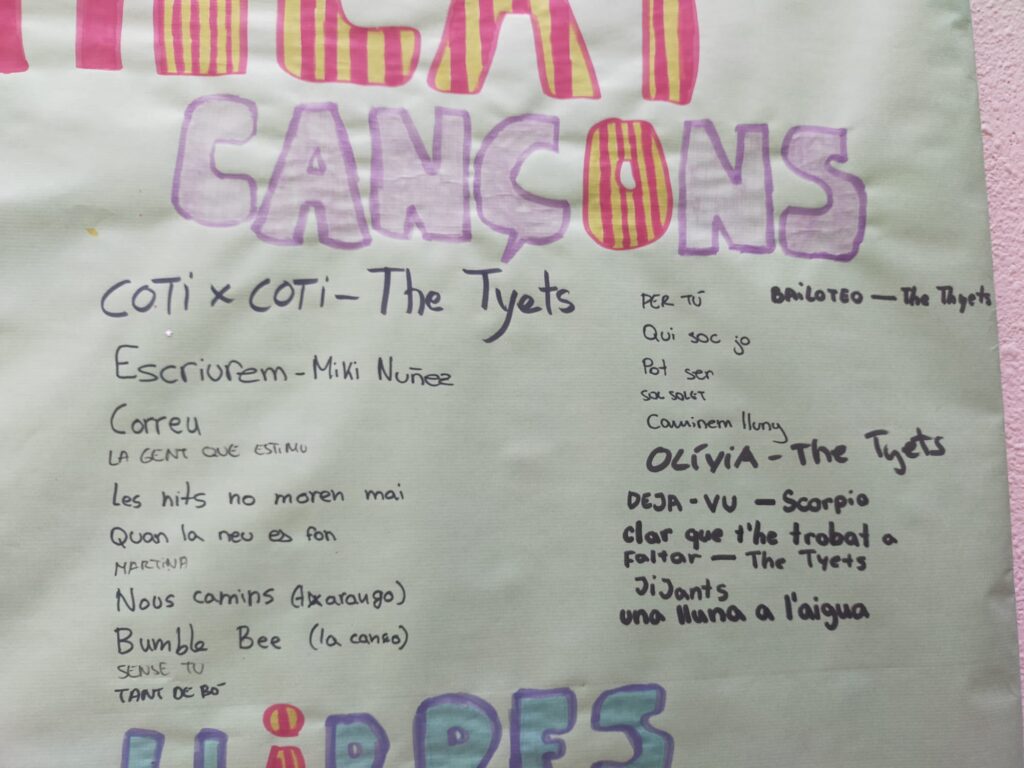 CANÇONS
COTI x COTI - The Tyets
Escriurem - Miki Nuñez
Correu
LA GENT QUE ESTIMO
Les nits no moren mai
Quan la neu es fon
MARTINA
Nous camins (Txarango)
Bumble Bee (la canso)
SENSE TU
TANT DE BÓ
PER TÚ
BAILOTEO - The Thyets
Qui soc jo
Pot ser
SOL SOLET
Caminem lluny
OLÍVIA - The Tyets
DEJA-VU - Scorpio
clar que t'he trobat a
Faltar - The Tyets
JiJants
una lluna a l'aigua
LLIBRES